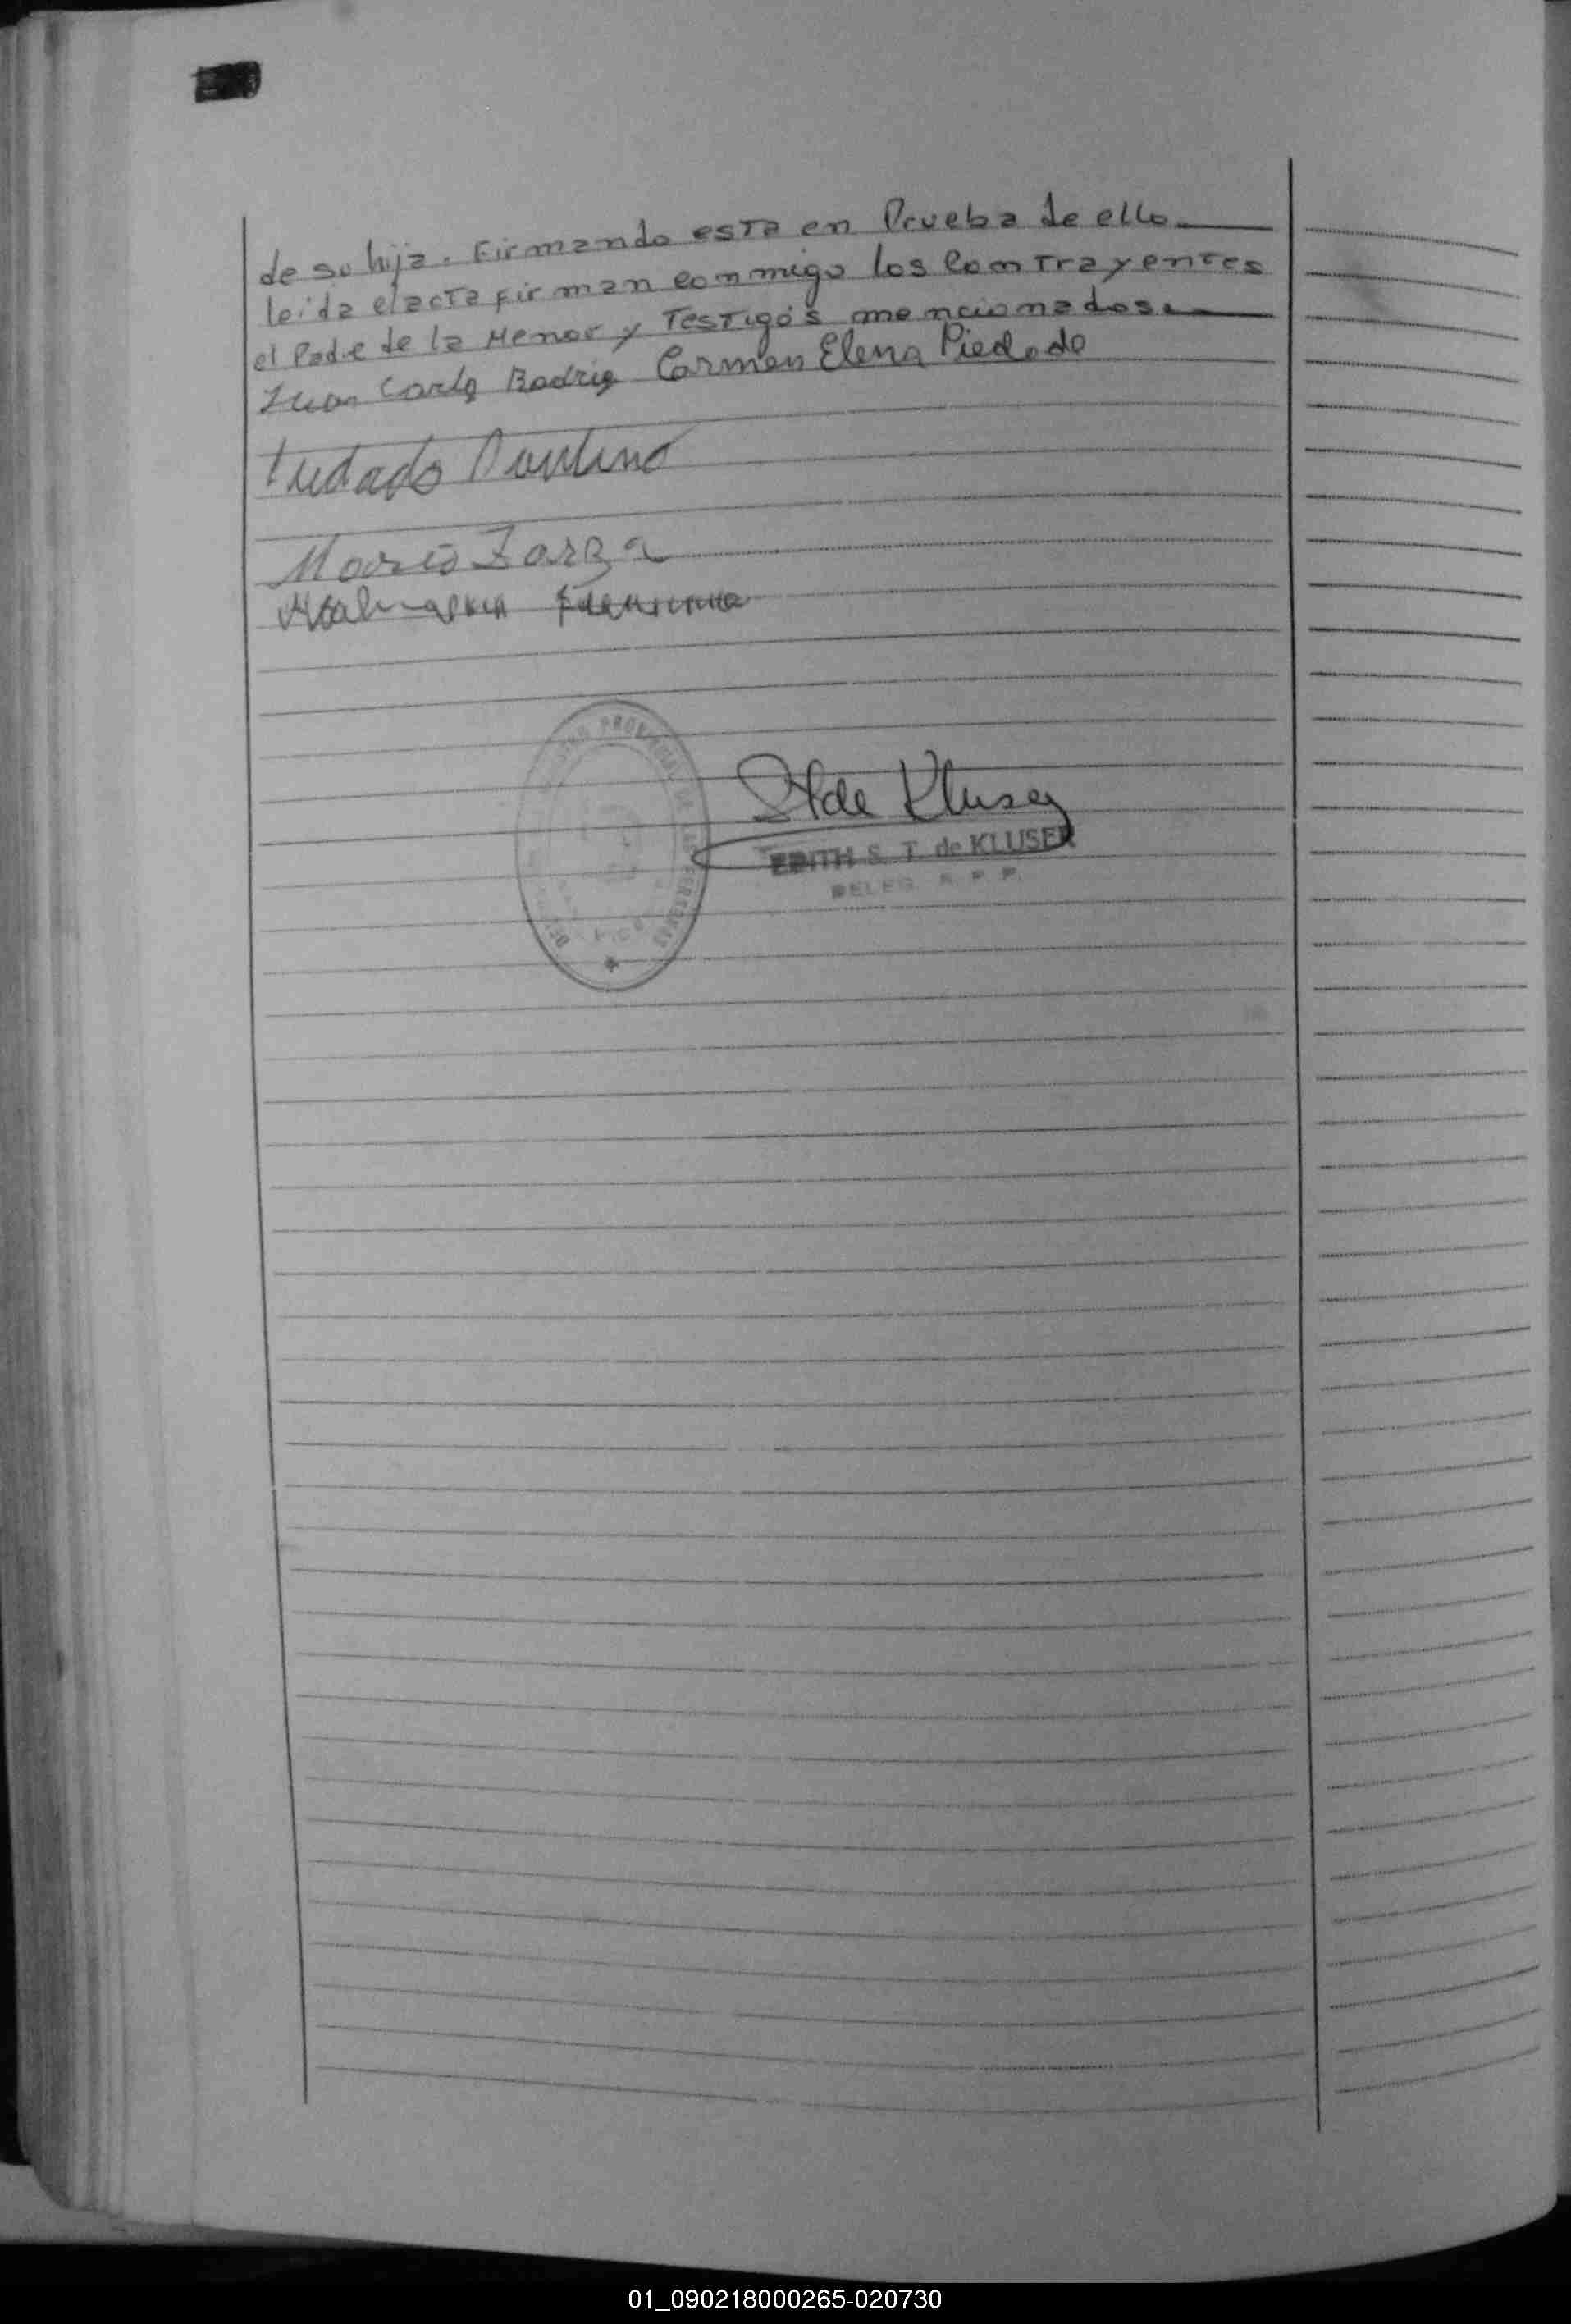 de su hija. Firmando esta en Prueba de ello
leída el acta firman conmigo los Contrayentes
el Padre de la Menor y Testigos mencionados.
Juan Carlo Rodrig Carmen Elena Piedade
Paulino
Mario Zarza
St de Kluser
EDITH S. T. de KLUSER
DELEG. R. P. P.
PROVINCIAL DE LAS PERSONAS
01_090218000265-020730